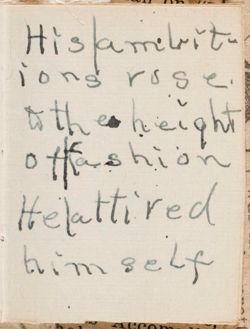 His ambit-
ions rose
to the height
of fashion
He attired
himself